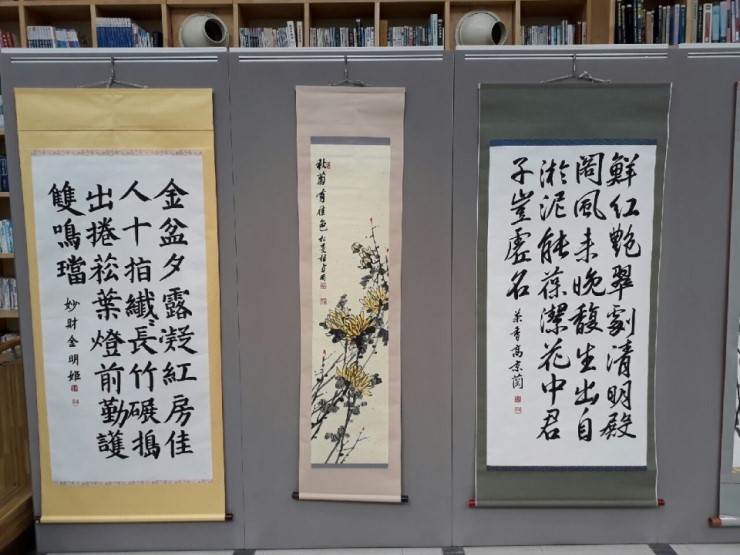 金盆夕露凝紅房佳
人十指纖〻長竹碾搗
出捲菘葉燈前勤護
雙鳴璫
妙財金明姬
秋菊有佳色
鮮紅艶翠劇清明殿
閣風来晩馥生出自
淤泥能葆潔花中君
子豈虛名